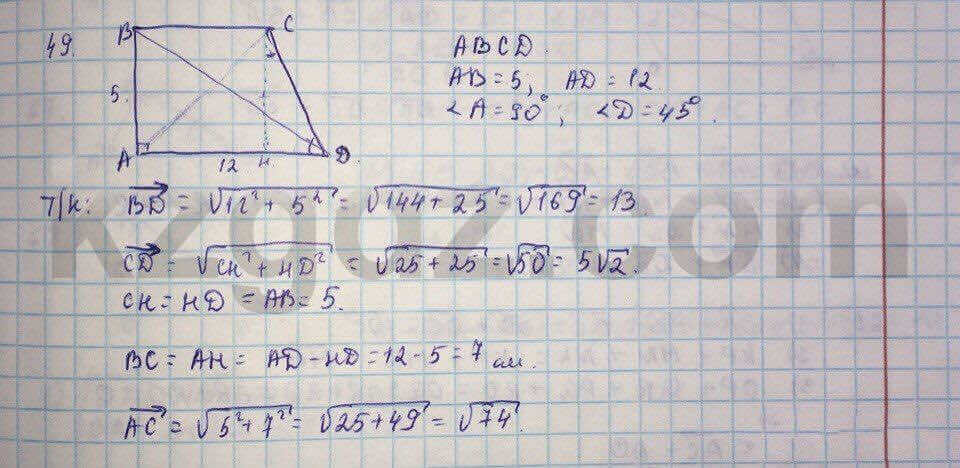 49.
B C
5.
A 12 H. D.
ABCD.
AB = 5; AD = 12
∠A = 90°; ∠D = 45°.
T/к: BD = √12² + 5² = √144 + 25 = √169 = 13.
CD = √CH² + HD² = √25 + 25 = √50 = 5√2.
CH = HD = AB = 5.
BC = AH = AD - HD = 12 - 5 = 7 см.
AC = √5² + 7² = √25 + 49 = √74.
kzgdz.com